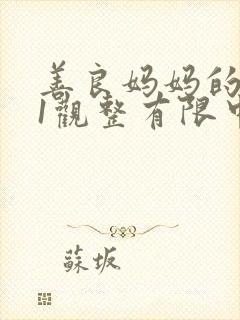 善良妈妈的
1觀整有限中
蘇坂